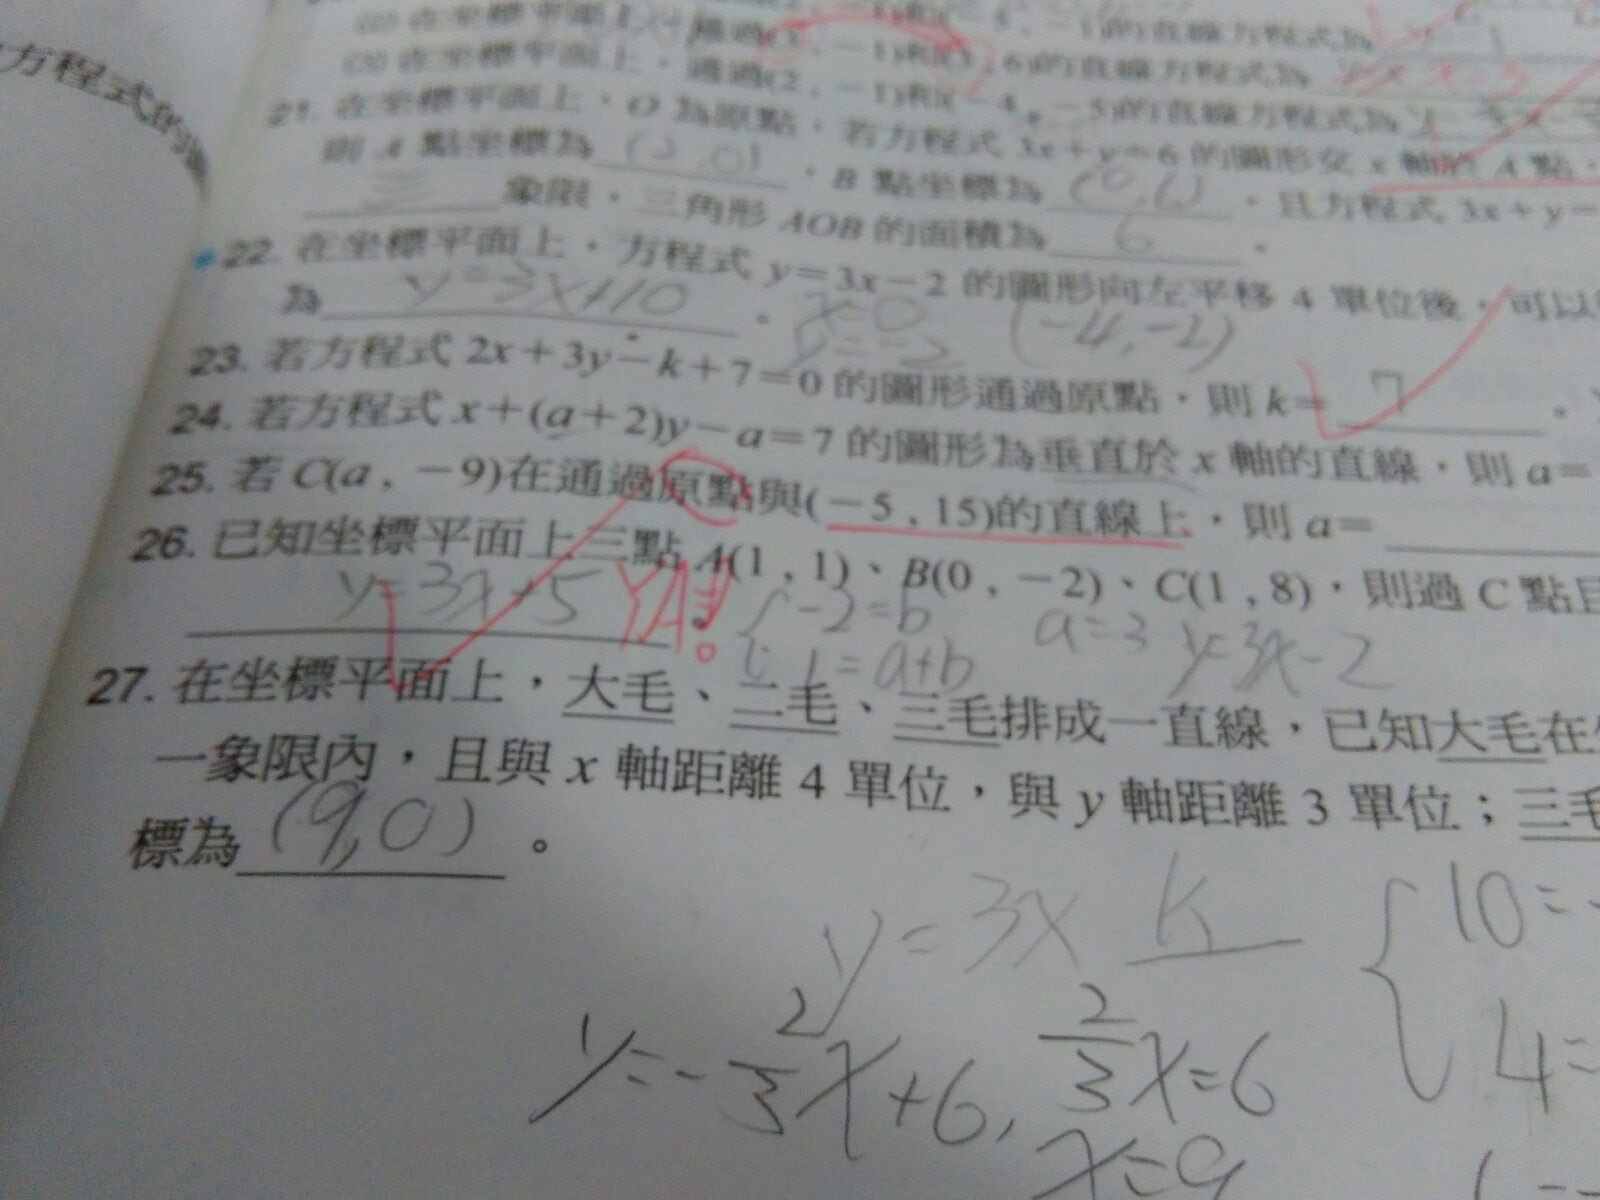 方程式的
(2) 在坐標平面上,通過
(3) 在坐標平面上,通過(2,-1)和(-4,-5)的直線方程式為
21. 在坐標平面上,O 為原點,若方程式 3x+y=6 的圖形交 x 軸於 A 點,
則 A 點坐標為 (2,0) ,B 點坐標為 (0,6) ,且方程式 3x+y=
三 象限,三角形 AOB 的面積為 6 。
*22. 在坐標平面上,方程式 y=3x-2 的圖形向左平移 4 單位後,可以
為 y=3x+10 。 x=0 (-4,-2)
y=-2
23. 若方程式 2x+3y-k+7=0 的圖形通過原點,則 k= 7 。
24. 若方程式 x+(a+2)y-a=7 的圖形為垂直於 x 軸的直線,則 a=
25. 若 C(a,-9)在通過原點與(-5,15)的直線上,則 a=
26. 已知坐標平面上三點 A(1,1)、B(0,-2)、C(1,8),則過 C 點且
y=3x+5 YA! -2=b a=3 y=3x-2
1=a+b
27. 在坐標平面上,大毛、二毛、三毛排成一直線,已知大毛在
一象限內,且與 x 軸距離 4 單位,與 y 軸距離 3 單位;三毛
標為 (9,0) 。
y=3x k
10=
y=-2/3x+6, 2/3x=6
4=
x=9